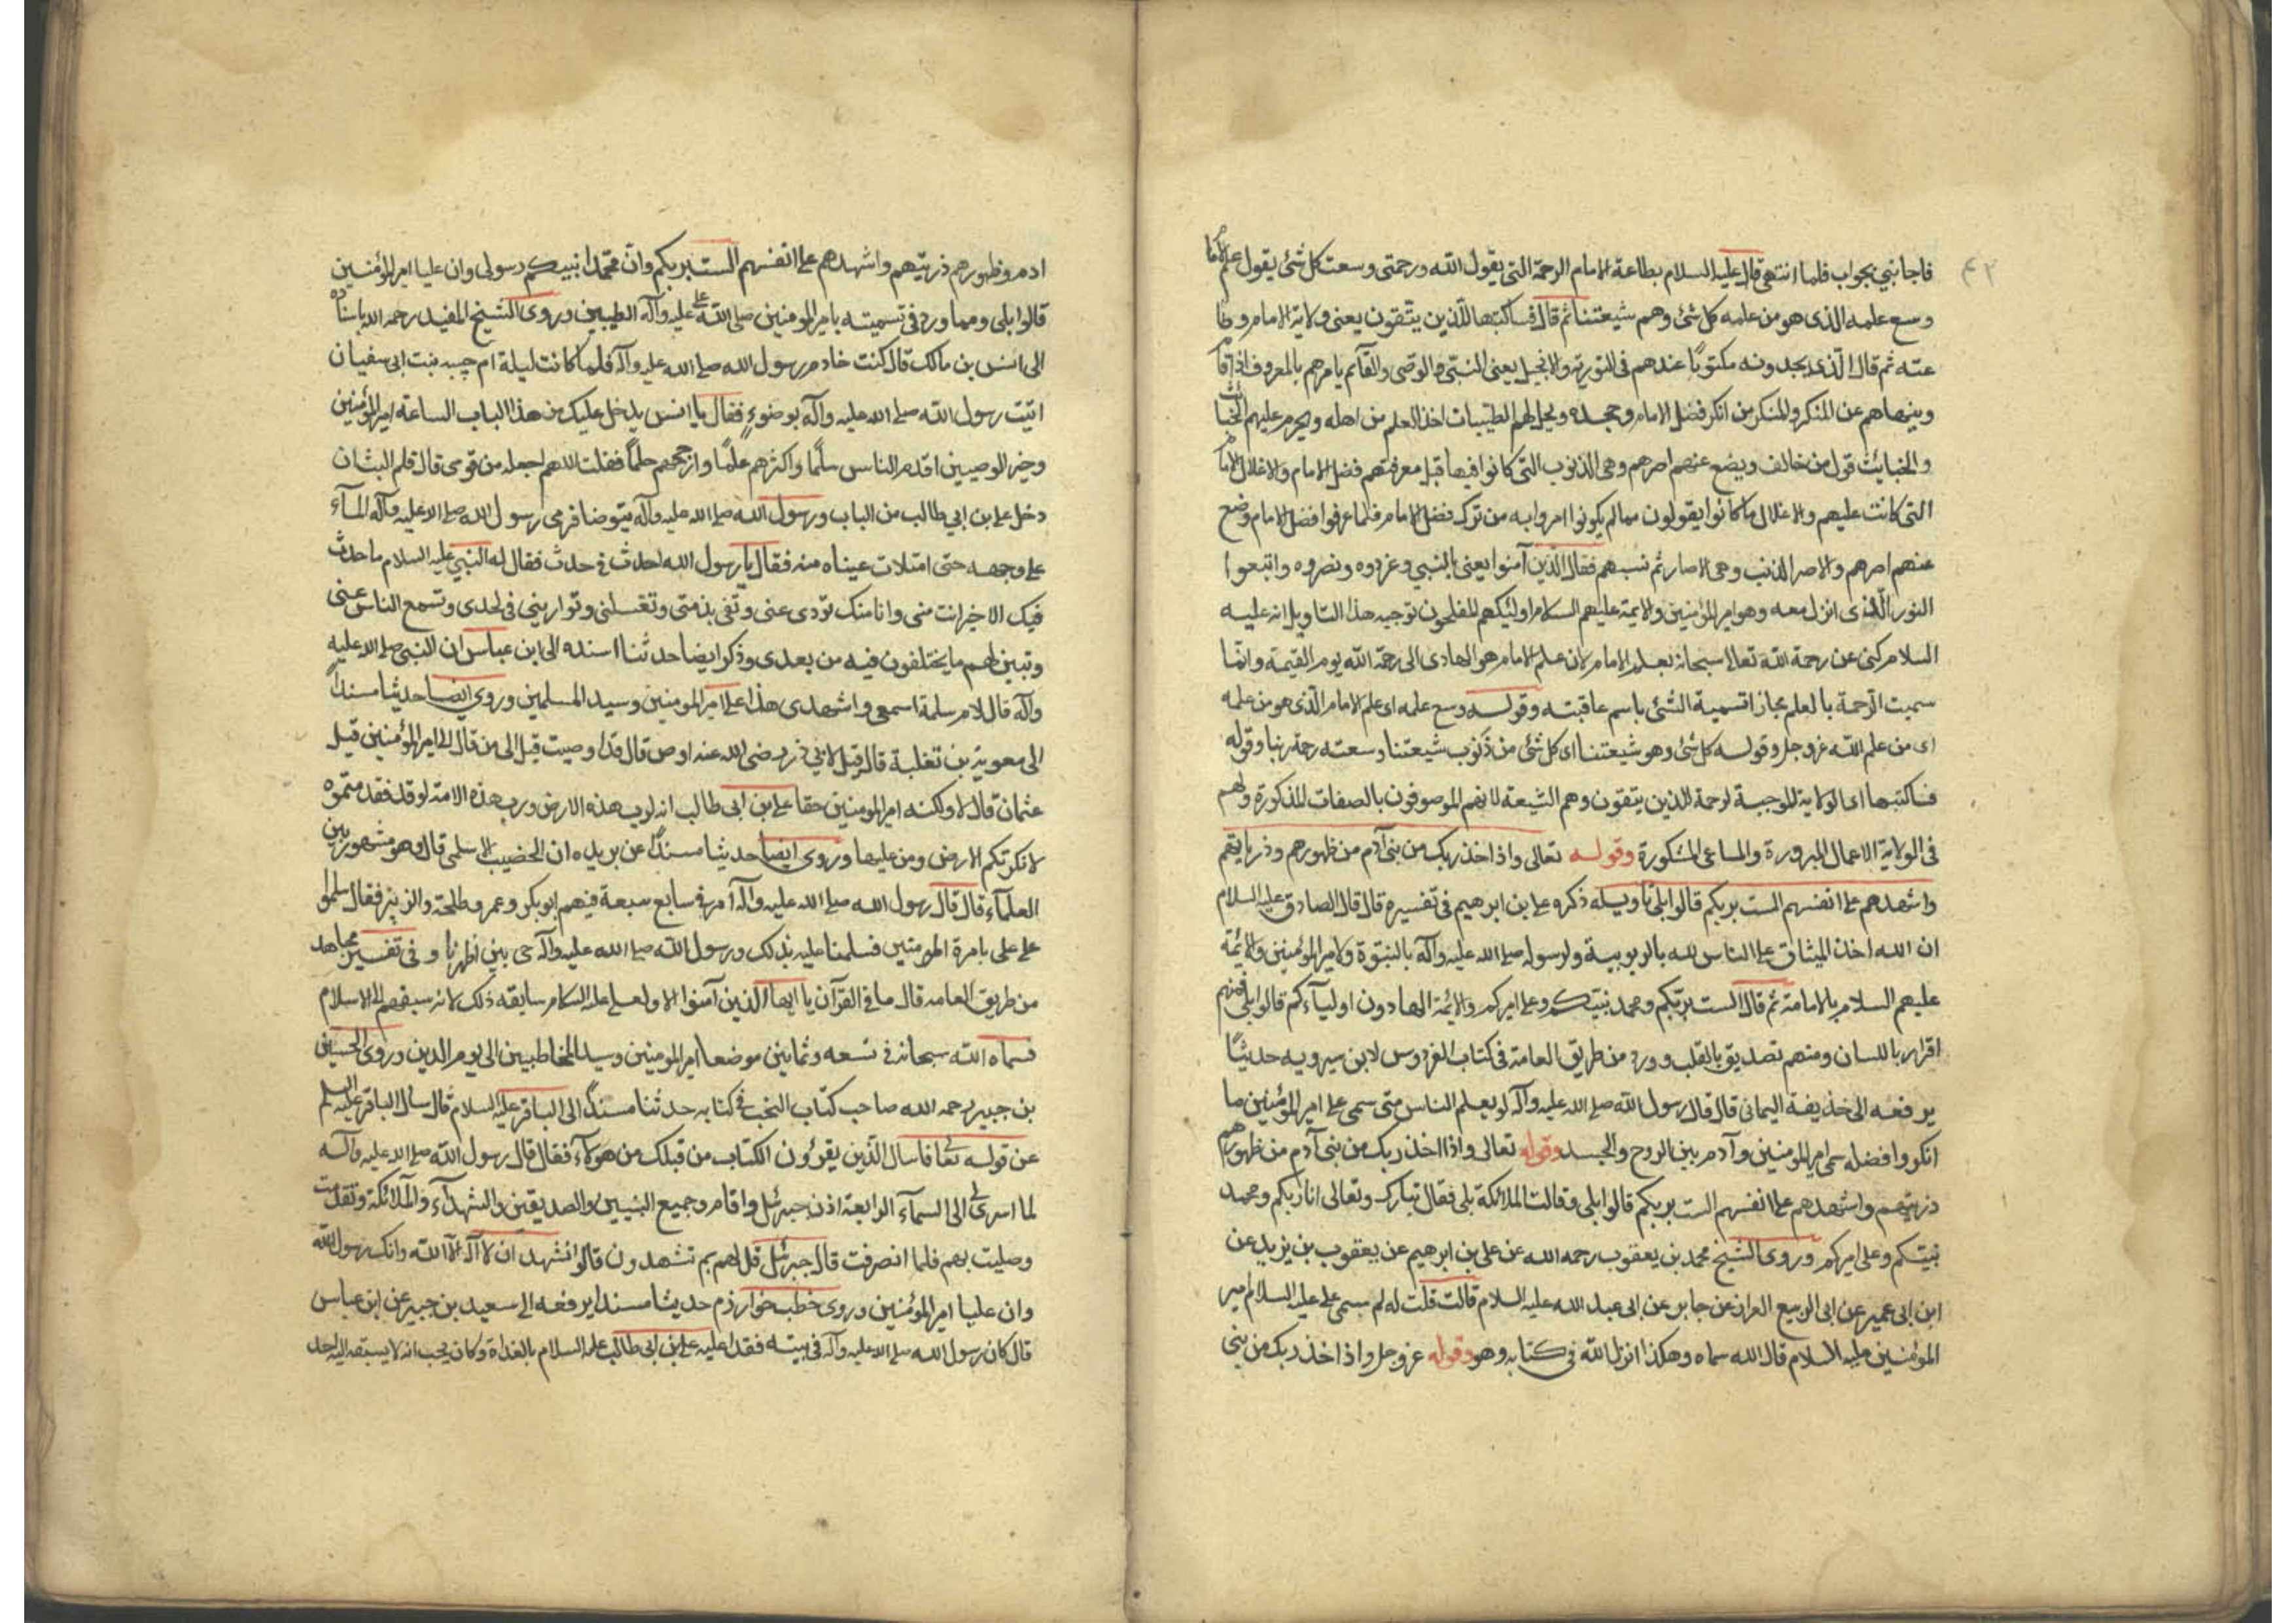 ٤٢
فاجابني بجواب فلما انتهى قال عليه السلام بطاعة الامام الرحمة التى يقول الله ورحمتى وسعت كل شئ يقول علم الامام
وسع علمه الذى هو من علمه كل شئ وهم شيعتنا ثم قال فساكتبها للذين يتقون يعنى ولاية الامام وطا
عته ثم قال الذى يجدونه مكتوبا عندهم فى التورية والانجيل يعنى النبى والوصى والقآئم يامرهم بالمعروف اذا قام
وينهاهم عن المنكر والمنكر من انكر فضل الامام وجحده ويحل لهم الطيبات اخذ العلم من اهله ويحرم عليهم الخبائث
والخبايث قول من خالف ويضع عنهم اصرهم وهى الذنوب التى كانوا فيها قبل معرفتهم فضل الامام والاغلال
التى كانت عليهم والاغلال ما كانوا يقولون مما لم يكونوا امروا به من ترك فضل الامام فلما عرفوا فضل الامام وضع
عنهم اصرهم والاصر الذنب وهى الاصار ثم نسبهم فقال الذين آمنوا يعنى بالنبي وعزروه ونصروه واتبعوا
النور الذى انزل معه وهو امير المؤمنين والايمة عليهم السلام اولئك هم المفلحون توجيه هذا التاويل انه عليه
السلام كنى عن رحمة الله تعالى سبحانه بعلم الامام لان علم الامام هو الهادى الى رحمة الله يوم القيمة وانما
سميت الرحمة بالعلم مجازا تسمية الشئ باسم عاقبته وقوله وسع علمه اى علم الامام الذى هو من علمه
اى من علم الله عز وجل وقوله كل شئ وهو شيعتنا اى كل شئ من ذنوب شيعتنا وسعته رحمة ربنا وقوله
فساكتبها اى الولاية الموجبة لرحمة للذين يتقون وهم الشيعة لانهم الموصوفون بالصفات المذكورة ولهم
فى الولاية الاعمال المبرورة والمساعى المشكورة وقوله تعالى واذ اخذ ربك من بنى آدم من ظهورهم وذرياتهم
واشهدهم على انفسهم الست بربكم قالوا بلى تاويله ذكره على بن ابرهيم فى تفسيره قال قال الصادق عليه السلام
ان الله اخذ الميثاق على الناس لله بالربوبية ولرسوله صلى الله عليه وآله بالنبوة ولامير المؤمنين والائمة
عليهم السلام بالامامة ثم قال الست بربكم ومحمد نبيكم وعلى اميركم والائمة الهادون اوليآءكم قالوا بلى فمنهم
اقرار باللسان ومنهم تصديق بالقلب وورد من طريق العامة فى كتاب الفردوس لابن سيرويه حديثا
يرفعه الى حذيفة اليمانى قال قال رسول الله صلى الله عليه وآله لو يعلم الناس متى سمى على امير المؤمنين ما
انكروا فضله سمى امير المومنين وآدم بين الروح والجسد وقوله تعالى واذا اخذ ربك من بنى آدم من ظهورهم
ذريتهم واشهدهم على انفسهم الست بربكم قالوا بلى وقالت الملائكة بلى فقال تبارك وتعالى انا ربكم ومحمد
نبيكم وعلى اميركم وروى الشيخ محمد بن يعقوب رحمه الله عن على بن ابرهيم عن يعقوب بن يزيد عن
ابن ابى عمير عن ابى الربيع القزاز عن جابر عن ابى عبد الله عليه السلام قالت قلت له لم سمى على عليه السلام امير
المؤمنين عليه السلام قال الله سماه وهكذا انزل الله فى كتابه وهو وقوله عز وجل واذ اخذ ربك من بنى
ادم وظهورهم ذريتهم واشهدهم على انفسهم الست بربكم وان محمدا نبيكم رسولى وان عليا امير المؤمنين
قالوا بلى ومما ورد فى تسميته بامير المومنين صلى الله عليه وآله الطيبين وروى الشيخ المفيد رحمه الله باسناده
الى انس بن مالك قال كنت خادم رسول الله صلى الله عليه وآله فلما كانت ليلة ام حبيبه بنت ابى سفيان
اتيت رسول الله صلى الله عليه وآله بوضوء فقال يا انس يدخل عليك من هذا الباب الساعة امير المؤمنين
وخير الوصيين اقدم الناس سلما واكثرهم علما وارجحهم حلما فقلت اللهم اجعله من قومى قال فلم البث ان
دخل على بن ابي طالب من الباب ورسول الله صلى الله عليه وآله يتوضا فرمى رسول الله صلى الله عليه وآله المآء
على وجهه حتى امتلات عيناه منه فقال يا رسول الله احدث فى حدث فقال له النبي عليه السلام ما حدث
فيك الا خير انت منى وانا منك تؤدى عنى وتفى بذمتى وتغسلنى وتوارينى فى لحدى وتسمع الناس عنى
وتبين لهم ما يختلفون فيه من بعدى وذكر ايضا حديثنا اسنده الى ابن عباس ان النبى صلى الله عليه
وآله قال لام سلمة اسمعى واشهدى هذا على امير المومنين وسيد المسلمين وروى ايضا حديثا مسندا
الى معوية بن ثعلبة قال قيل لابي ذر رضى الله عنه اوص قال قد اوصيت قيل الى من قال الى امير المؤمنين قيل
عثمان قال لا ولكنه امير المومنين حقا على بن ابى طالب انه لرب هذه الارض ورب هذه الامة لو قد فقدتموه
لانكرتكم الارض ومن عليها وروى ايضا حديثا مسندا عن بريده ان الحضيب الاسلمى قال وهو مشهور بين
العلمآء قال قال رسول الله صلى الله عليه وآله امرنى سابع سبعة فيهم ابو بكر وعمر وطلحة والزبير فقال سلموا
على على بامرة المومنين فسلمنا عليه بذلك ورسول الله صلى الله عليه وآله حى بين اظهرنا وفى تفسير مجاهد
من طريق العامه قال ما فى القرآن يا ايها الذين آمنوا الا ولعلى عليه السلام سابقه ذلك لانه سبقهم الى الاسلام
فسماه الله سبحانه فى تسعه وثمانين موضعا امير المومنين وسيد المخاطبين الى يوم الدين وروى الحسين
بن جبير رحمه الله صاحب كتاب النخب فى كتابه حديثنا مسندا الى الباقر عليه السلام قال سال الباقر عليه السلم
عن قوله تعالى فاسال الذين يقرؤن الكتاب من قبلك من هولآء فقال قال رسول الله صلى الله عليه وآله
لما اسرى بى الى السمآء الرابعة اذن جبرئيل واقام وجميع النبيين والصديقين والشهدآء والملائكة وتقدمت
وصليت بهم فلما انصرفت قال جبرئيل قل لهم بم تشهدون قالوا نشهد ان لا اله الا الله وانك رسول الله
وان عليا امير المؤمنين وروى خطب خوارزم حديثا مسندا يرفعه الى سعيد بن جبير عن ابن عباس
قال كان رسول الله صلى الله عليه وآله فى بيته فغدا عليه على بن ابى طالب عليه السلام بالغداة وكان يحب انه لا يسبقه اليه احد